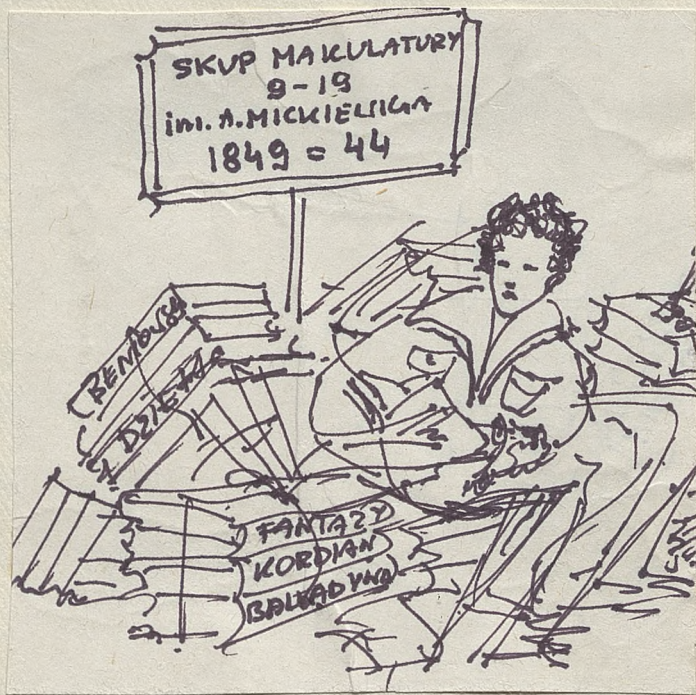 SKUP MAKULATURY
9-19
im. A. MICKIEWIGA
1849 = 44
BENIOWSKI
DZIEŁA
FANTAZY
KORDIAN
BALLADYNA